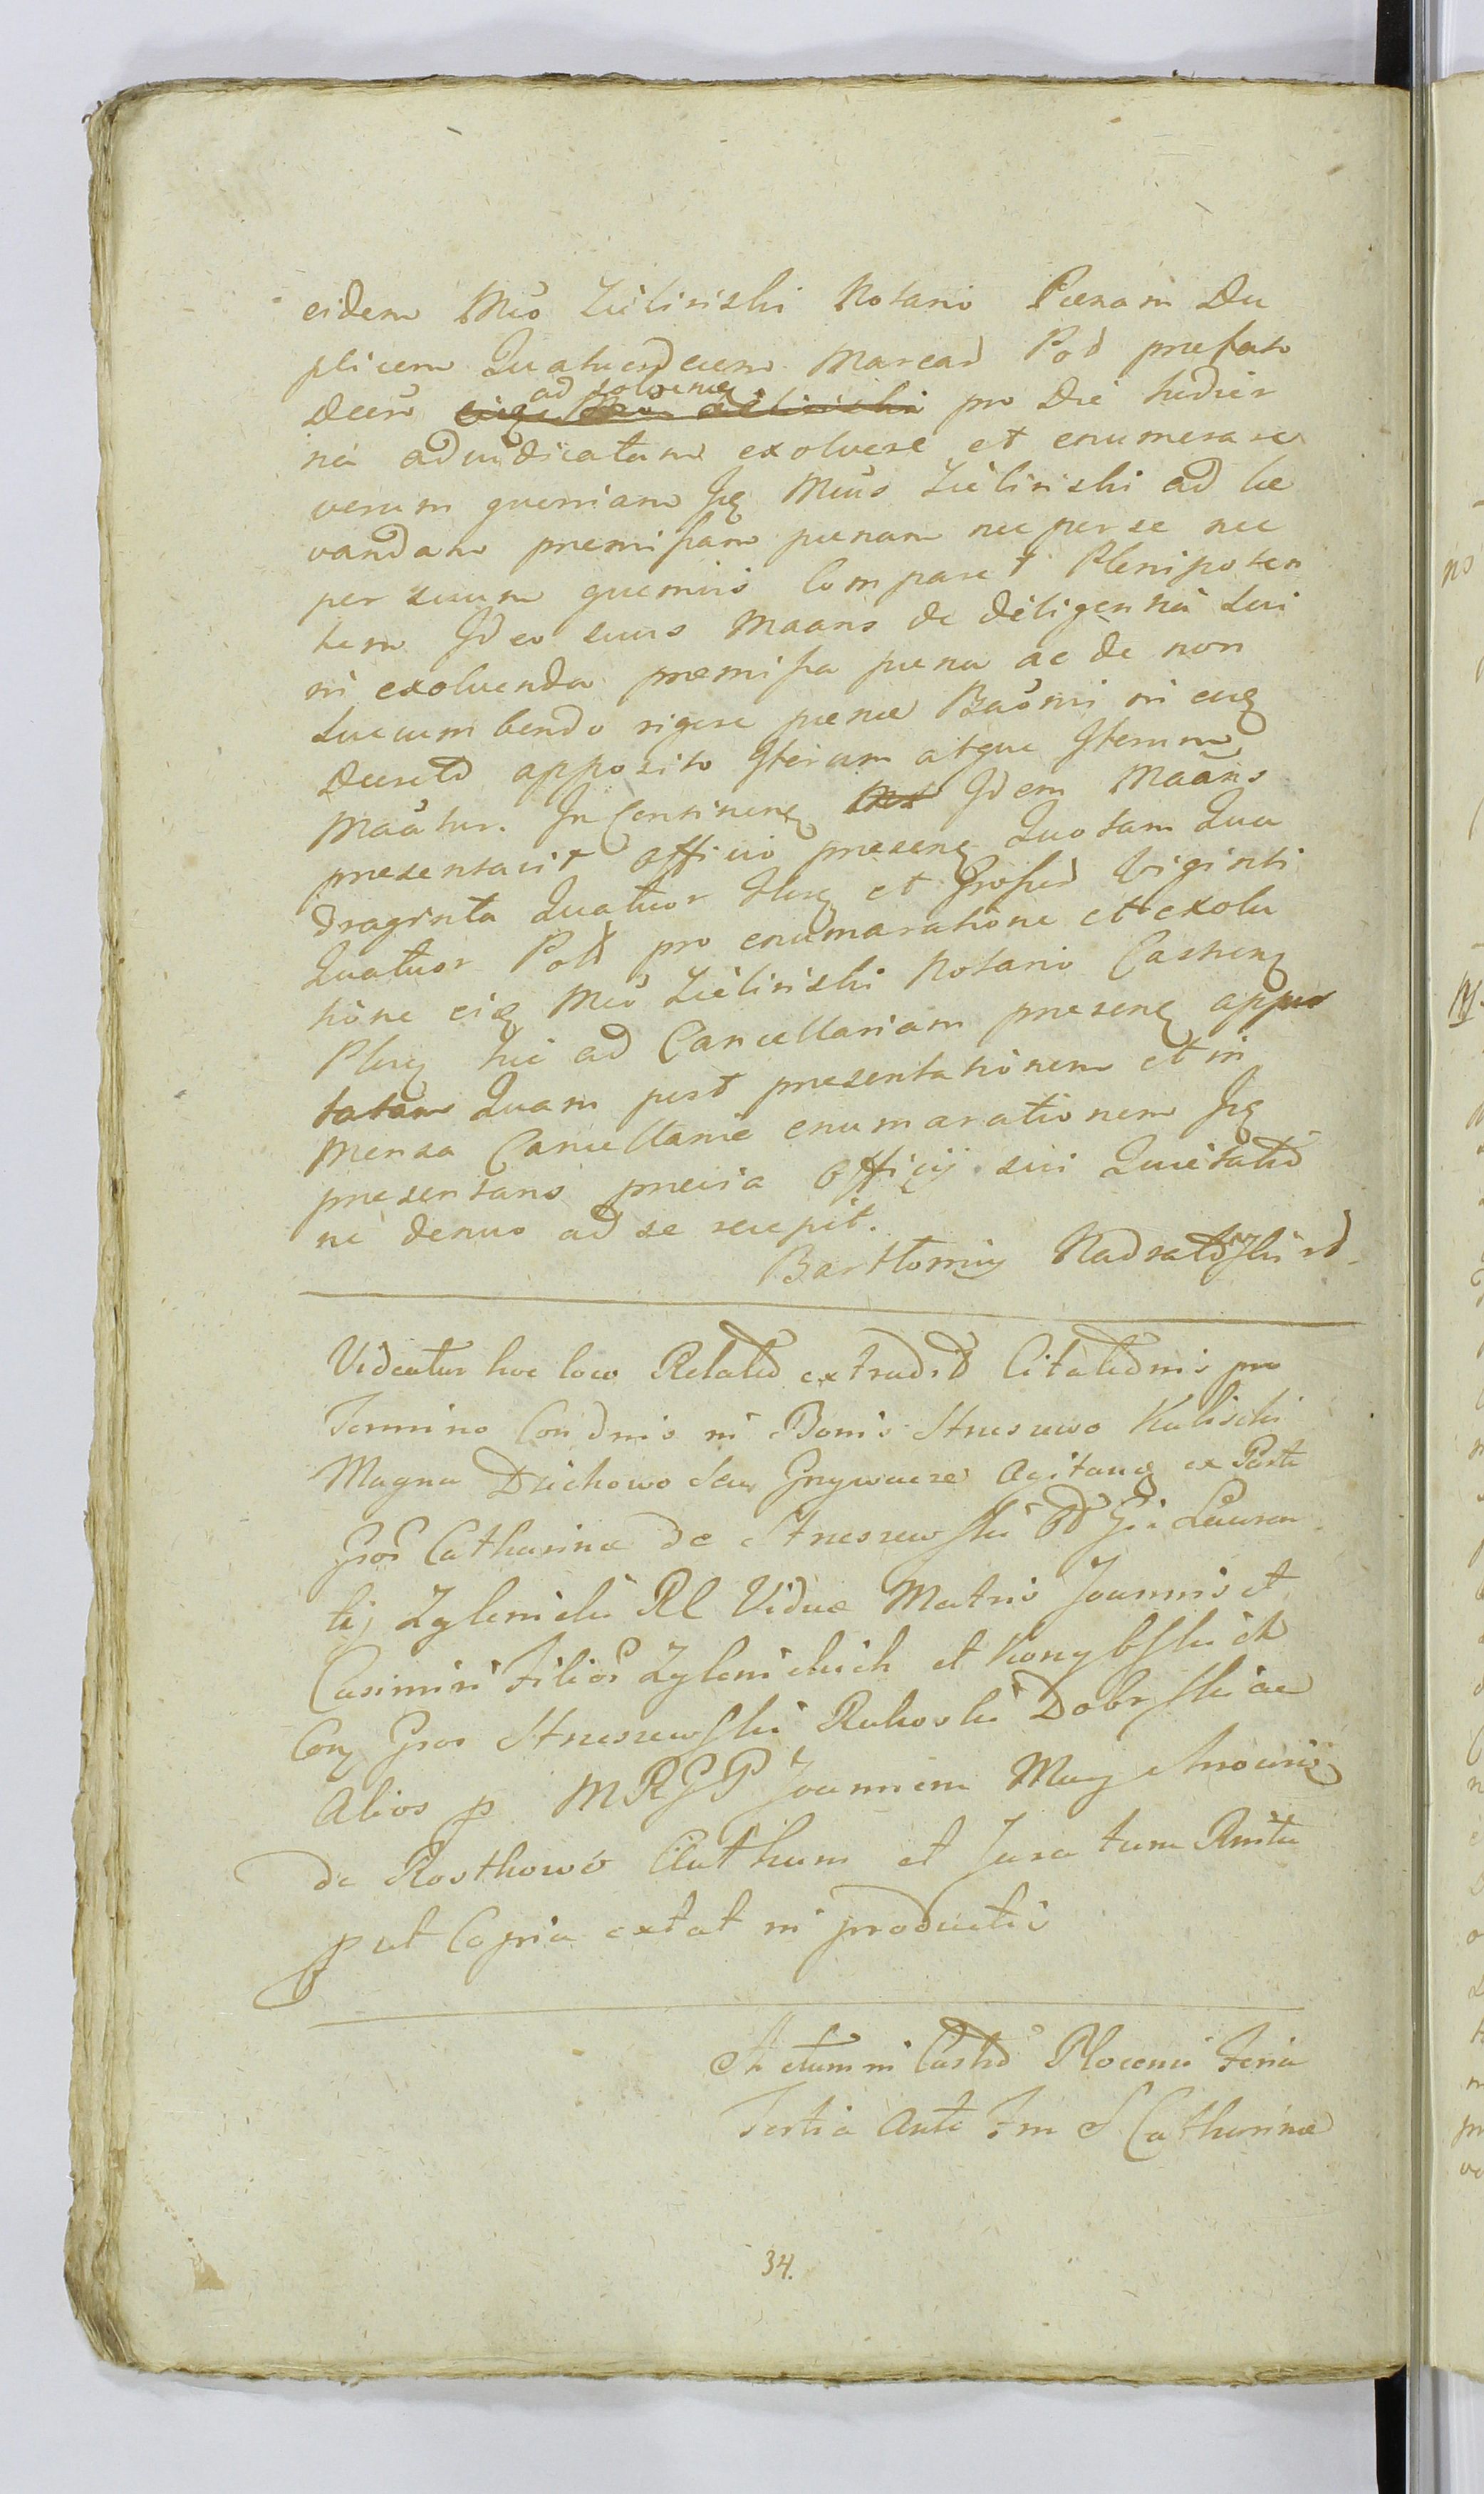 eidem Mco Zielinski Notario Pænam Du
plicem Quatuordecem Marcas Pol prefato
Decro ad solvenq eiq Mco Zielinski pro Die hodier
na adiudicatam exolvere et enumerare
verum quoniam Ipq Mcus Zielinski ad le
vandam premissam pænam nec per se nec
per suum quemvis Comparet Plenipoten
tem Ideo suus Maans de diligentia sui
in exolvenda premissa pæna ac de non
succumbendo rigore pænæ Baõnis in eoq
Decreto apposito Iterum atque Iterum
Maãtur. In Continenq Idem Maãns
presentavit Officio presenq Quotam Qua
draginta Quatuor flnq et Grossos Viginti
Quatuor Pol pro enumeratione et exolu
tione eiq Mco Zielinski Notario Castrenq
Plnq hic ad Cancellariam presenq appor
tatam Quam post presentationem et in
Mensa Cancellariæ enumarationem Ipq
presentans previa Officij sui Quietatio
ne denuo ad se recepit.
Bartłomiy Nadratowski rd
Videatur hoc loco Relatio extradio Citationis pro
Termino Condnis in Bonis Strzeszewo Kuliski
Magna Dzichowo seu Grzywacze Agitanq ex Parte
Gros Catharinæ de Strzeszewskie Gi Lauren
tij Zglenicki Rl Viduæ Matris Joannis et
Casimiri Filiōr Zglenickich et
Conq Gros Strzeszewski Rukoski Dobrski ac
Alios p MRGP Joannem
de Rosthowo Authum et Juratum Rmtu
put Copia extat in productis
Actum in Castro Plocensi Feria
Tertia Ante Fm S Catharinæ
34.